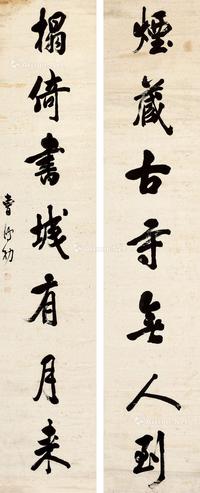 煙藏古寺無人到
榻倚書城有月来
曹鴻勛